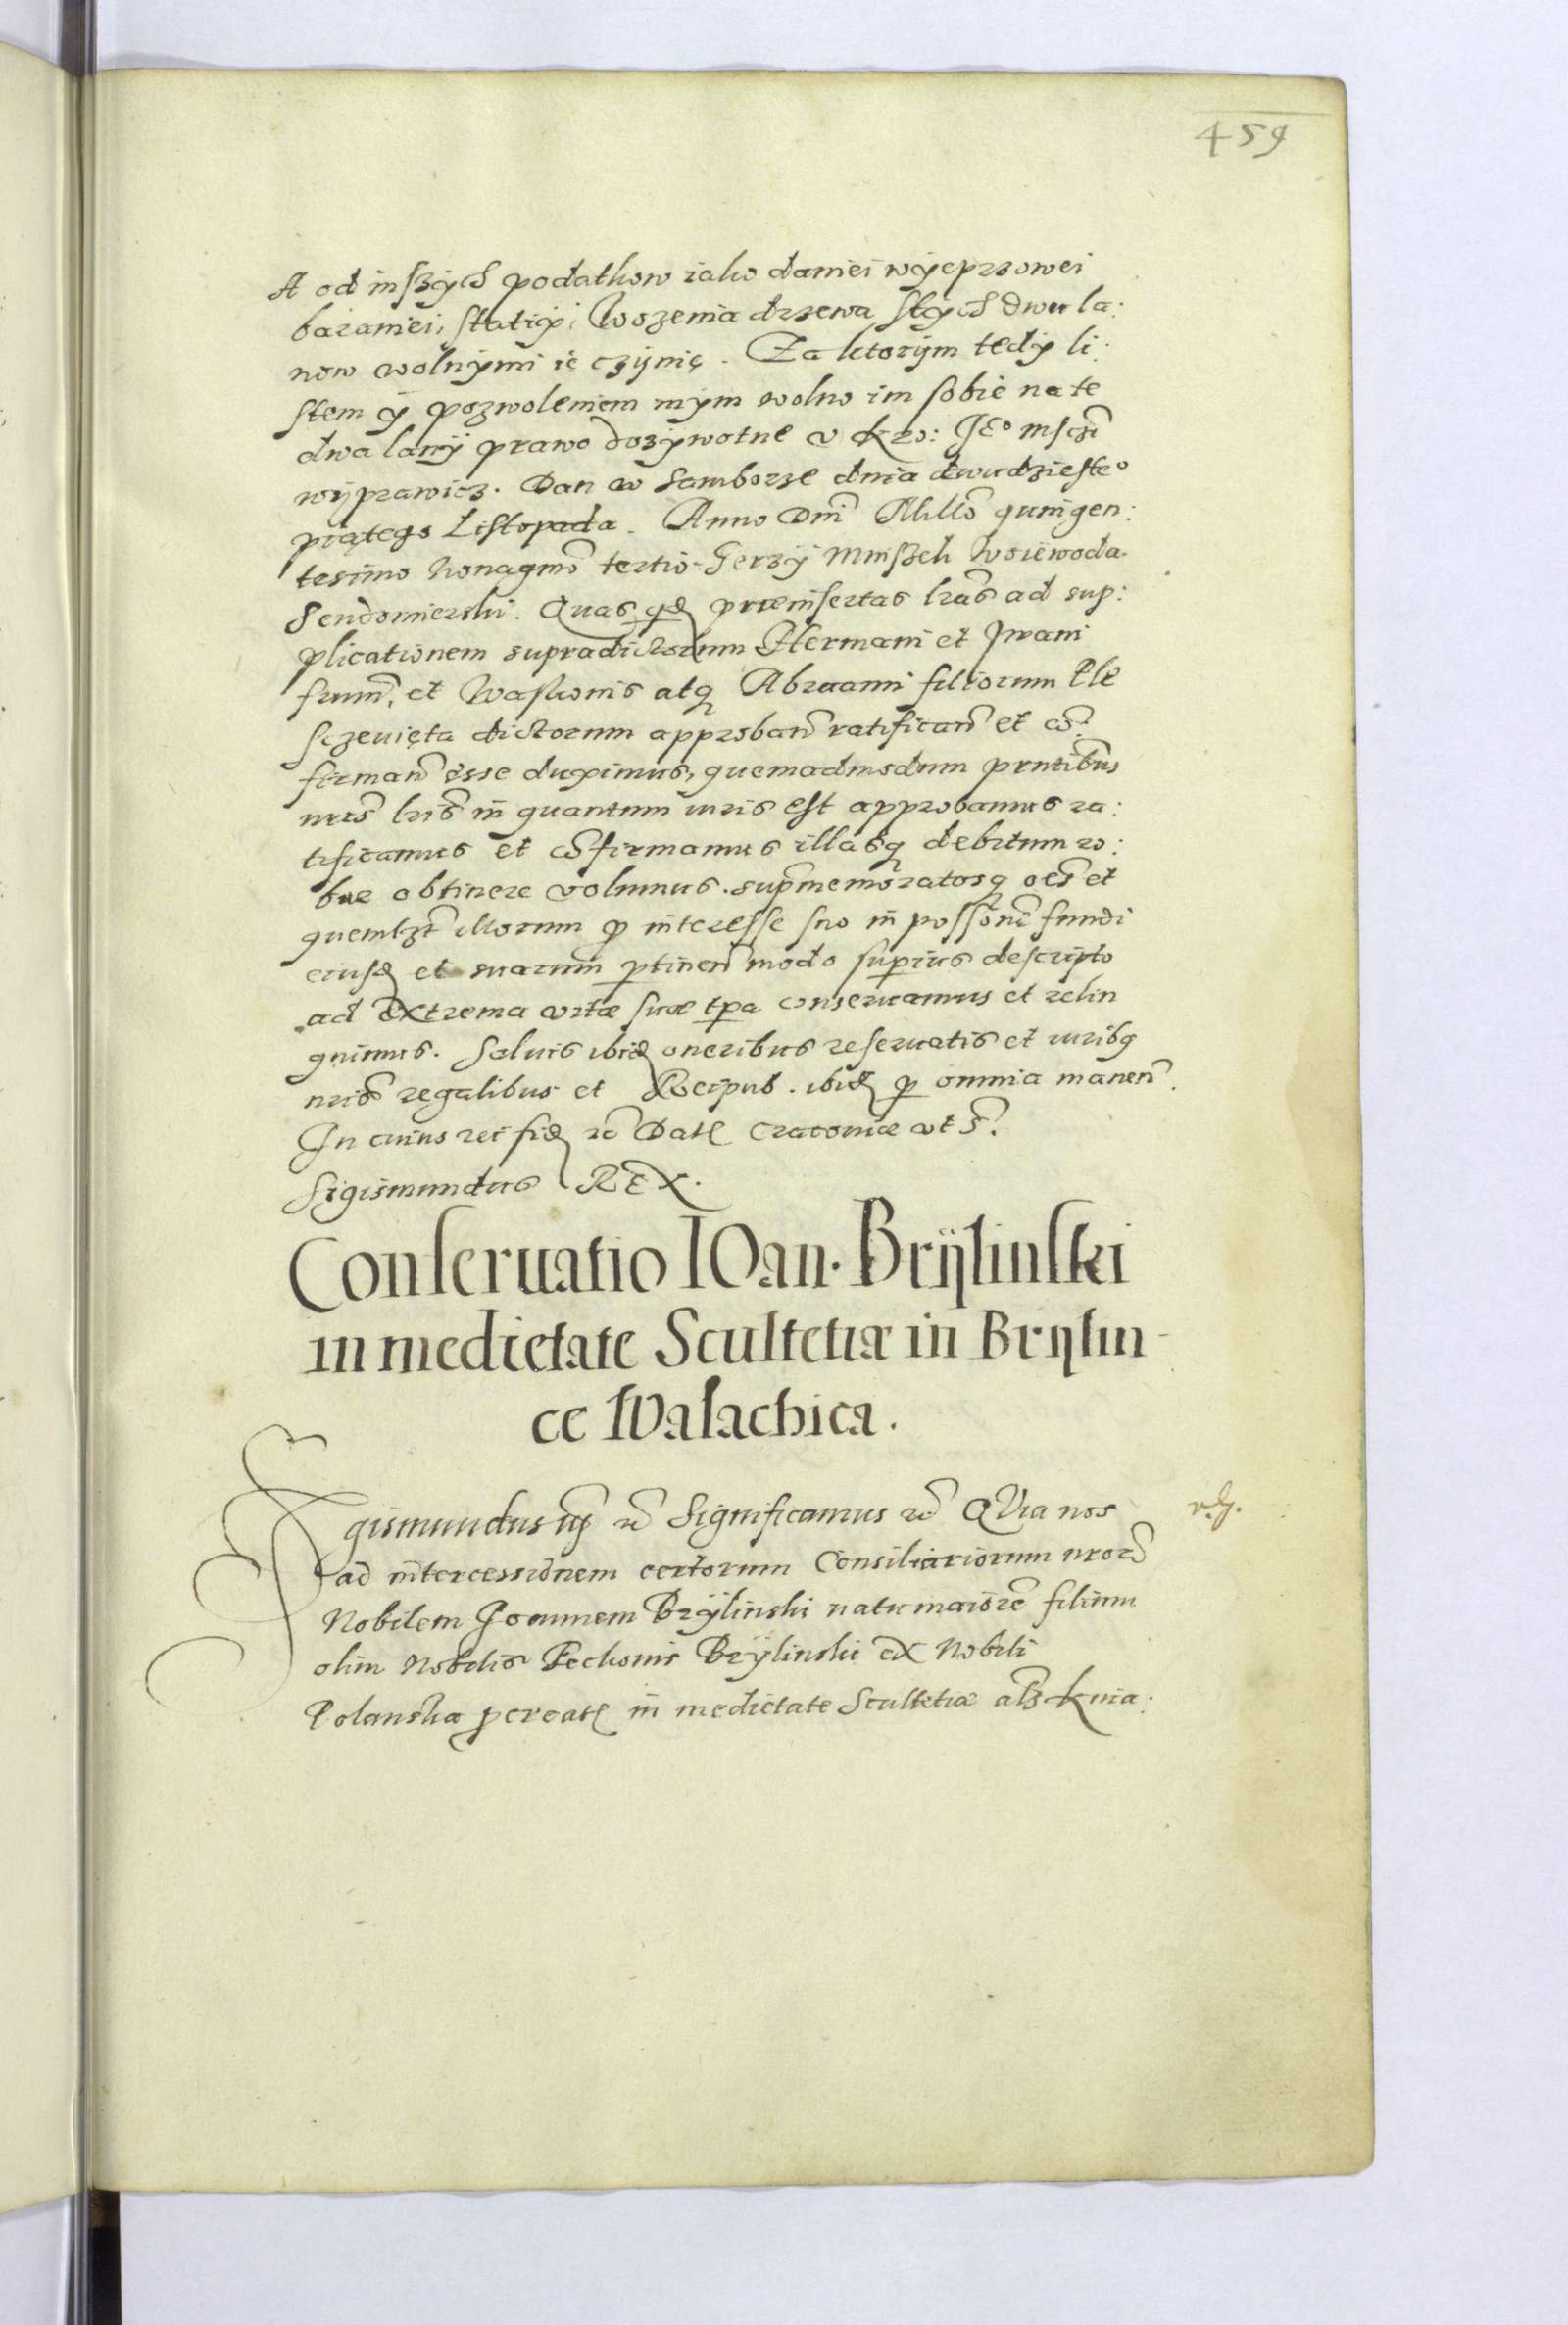 459
A od inszych podatkow iako daniei wyeprzowei
baraniei, statiÿ, Wozenia drzewa stych dwu la:
now wolnymi ie czÿnię. Za ktorÿm tedÿ li:
stem ÿ pozwoleniem mÿm wolno im sobie na te
dwa lanÿ prawo dozÿwotne v Kro: JEº Msczi
wÿprawicz. Dan w Samborze dnia dwudziesteº
piątego Listopada. Anno Dni Millo quingen:
tesimo Nonagmo tertio. Jerzÿ Mniszek Woiewoda
Sendomierski. Quas qd preinsertas lras ad sup:
plicationem supradictorum Hermani et Jwani
frum, et Waskonis atq Abraami filiorum Ple
sczeuięta dictorum approban ratifican et co
firman esse duximus, quemadmodum prntibus
nris lris in quantum iuris est approbamus ra:
tificamus et cofirmamus illasq debitum ro:
bur obtinere volumus. supmemoratosq oes et
quemlzt illorum p interesse suo in possone fundi
eiusd et suarum ptinen modo superius descripto
ad extrema vitæ suæ tpa conseruamus et relin
quimus. Saluis ibid oneribus reseruatis et iuribq
nris regalibus et Reipub. ibid p omnia manen.
In cuius rei fid rc Dat Cracouiæ vt s.
Sigismundus REX.
Conseruatio IOan. Brÿlinski
in medietate Scultetiæ in Brÿlin-
ce Walachica.
Sigismundus iij rc Significamus rc QVia nos
ad intercessionem certorum Consiliariorum nror
Nobilem Joannem Brÿlinski natu maiore filium
olim Nobilis Feckonis Brÿlinski ex Nobili
Polanska pcreat in medietate Scultetiæ als Knia: